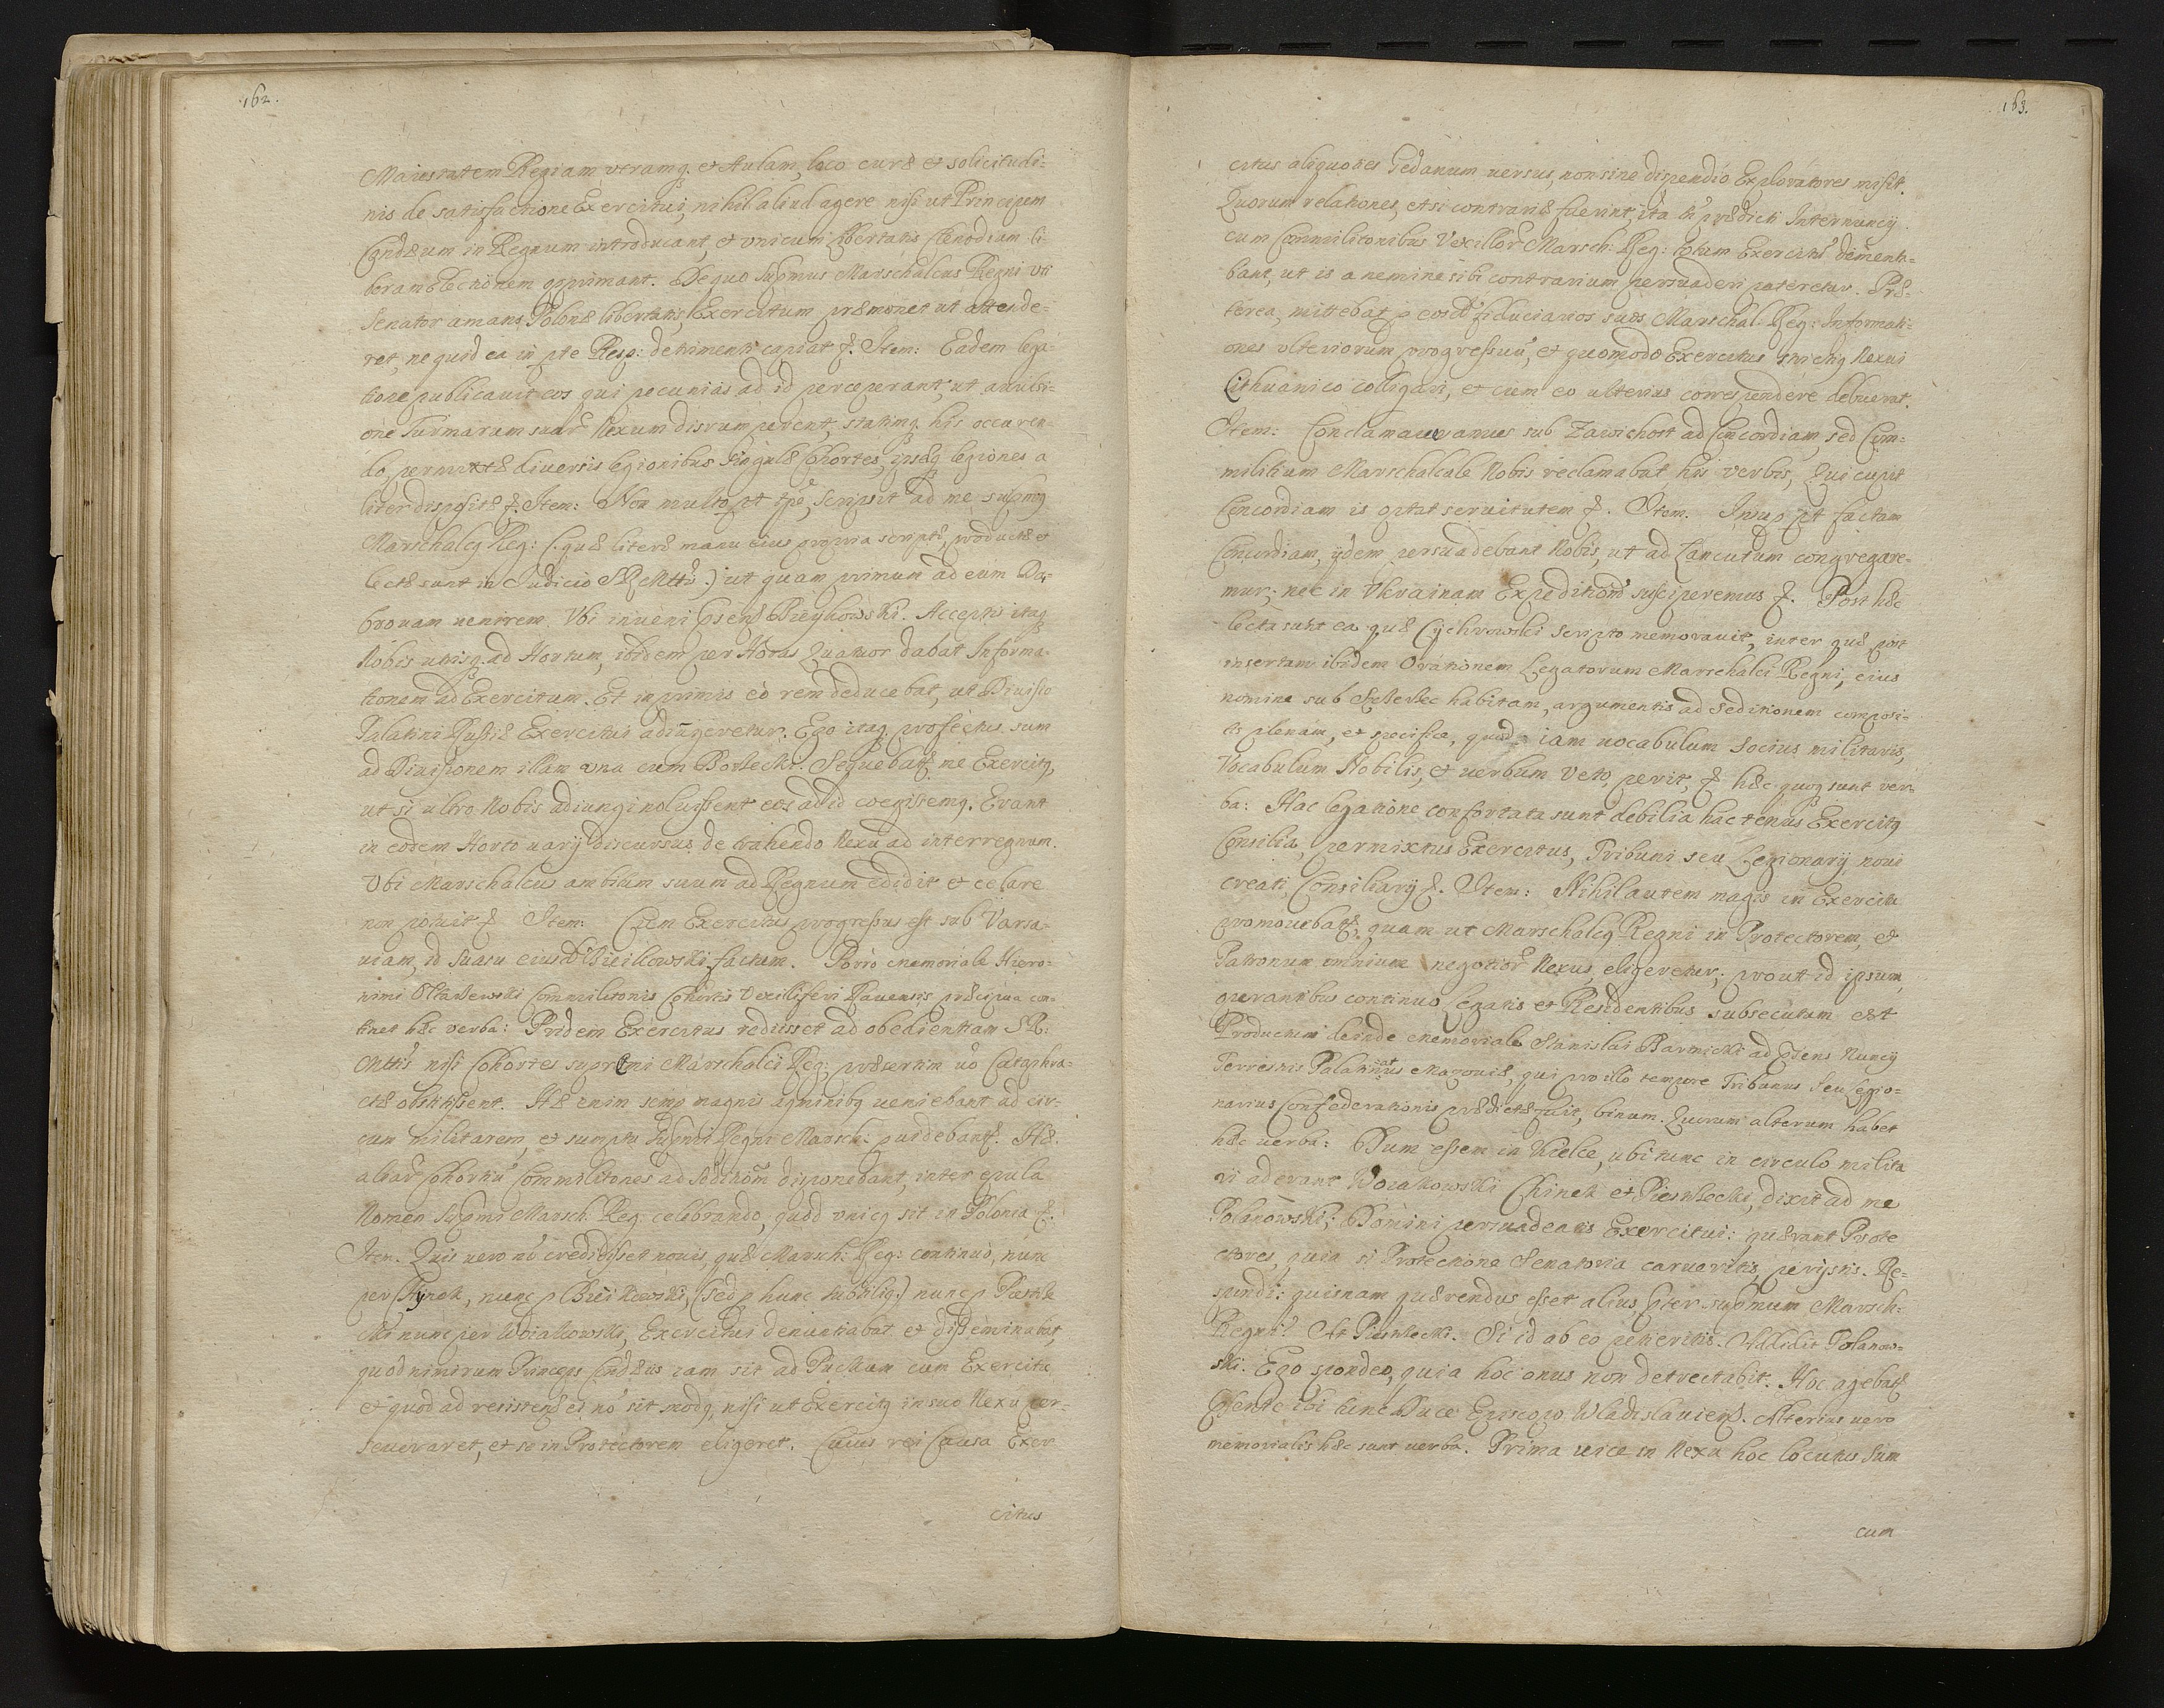 162.
Maiestatem Regiam utramq. et Aulam, loco curæ et solicitudi-
nis de satisfactione Exercitui, nihil aliud agere nisi ut Principem
Condæum in Regnum introducant, et unicum libertatis Clenodium li-
beram Electionem opprimant. De quo Supmus Marschalcus Regni uti
Senator amans Polonæ libertatis, Exercitum præmonet ut attende-
ret, ne quid ea in pte Resp: detrimenti capiat &. Item: Eadem lega-
tione publicauit eos qui pecunias ad id perceperant, ut auulsi-
one Turmarum suar Nexum disrumperent, statimq. his occuren-
do, permixtæ diuersis legionibus singulæ Cohortes, ipsæq legiones a
liter dispositæ &. Item: Non multo pt tpe, scripsit ad me supmq
Marschalcq Reg: (quæ literæ manu eius propria scriptæ, productæ et
lectæ sunt in Judicio SRMttis.) ut quam primum ad eum Da-
brouam uenirem. Ubi inueni psens Breyhowski. Acceptis itaq
Nobis utrisq. ad Hortum, ibidem per Horas Quatuor dabat Informa-
tionem ad Exercitum. Et inprimis eo rem deducebat, ut Diuisio
Palatini Russiæ Exercitui adiungeretur. Ego itaq. profectus sum
ad Diuisionem illam una cum Borzecki. Sequebatr me Exercitq,
ut si ultro Nobis adiungi noluissent eos ad id coegissemq. Erant
in eodem Horto uarij discursus de trahendo Nexu ad interregnum.
Ubi Marschalcus ambitum suum ad Regnum edidit et celare
non potuit & Item: Cum Exercitus progressus est sub Varsa-
uiam, id suasu eiusd Breikowski factum. Porro Memoriale Hiero-
nimi Commilitonis Cohortis Vexiliferi Rauensis præcipua con-
tinet hæc verba: Pridem Exercitus redisset ad obedientiam SR:
Mttis nisi Cohortes supremi Marschalci Reg: præsertim uo Cataphra-
ctæ obstitissent. Hæ enim semp magnis agminibq ueniebant ad cir-
cum militarem, et sumptu Supmi Regni Marsch: puidebantr. Hæ.
aliar Cohortiu Commilitones ad Sedition disponebant, inter epula
Nomen Supmi Marsch: Reg celebrando, quod unicq sit in Polonia &.
Item. Quis uero no credidisset nouis, quæ Marsch: Reg: continuo, nunc
per Chynek, nunc p Breikowski, (sed p hunc subtiliq.) nunc p Piestrze
cki nunc per Woiakowski, Exercitui denuntiabat et disseminabat,
quod nimirum Princeps Condæus iam sit ad Puckum cum Exercitu
et quod ad resistend ei no sit modq, nisi ut Exercitq in suo Nexu per-
seueraret, et se in Protectorem eligeret. Cuius rei Causa Exer
citus
163.
citus aliquoties Gedanum uersus, non sine dispendio Exploratores misit.
Quorum relationes, etsi contrariæ fuerint, ita tn prædicti Internuncij
cum Commilitonibus Vexillor Marsch: Reg: totum Exercitu dementa-
bant, ut is a nemine sibi contrarium persuaderi pateretur. Præ-
terea, mittebat p eosd fiduciarios suos Marschal. Reg: Informati-
ones ulteriorum progressuu, et quomodo Exercitus strictiq Nexui
Lithuanico colligari, et cum eo ulterius correspondere debuerat.
Item: Conclamaueramus sub Zawichost ad Concordiam, sed Com-
militium Marschalcale Nobis reclamabat his verbis, Qui cupit
Concordiam is optat seruitutem &. Item. Insup pt factam
Concordiam, ijdem persuadebant Nobis, ut ad Lancutum congregare-
mur; nec in Ukrainam Expeditione susciperemus &. Post hæc
lecta sunt ea quæ Cychrowski scripto memorauit, inter quæ post
insertam ibidem Orationem Legatorum Marschalci Regni, eius
nomine sub habitam, argumentis ad seditionem composi-
tis plenam, et specifice, quod iam uocabulum Socius militaris,
Vocabulum Nobilis, et uerbum Veto, perit, & hæc quoq sunt ver-
ba: Hac legatione confortata sunt debilia hactenus Exercitq
Consilia, permixtus Exercitus, Tribuni seu Legionarij noui
creati, Consiliarij &. Item: Nihil autem magis in Exercitu
promouebatr, quam ut Marschalcq Regni in Protectorem, et
Patronum omnium negotior Nexus eligeretur; prout id ipsum,
operantibus continuo legatis et Residentibus subsecutum est
Productum deinde Memoriale Stanislai Barnicki ad psens Nuncij
Terrestris Palatinatus Mazouiæ, qui pro illo tempore Tribunus seu Legio-
narius Confederationis prædictæ fuit, binum. Quorum alterum habet
hæc uerba: Dum essem in Kielce, ubi tunc in circulo milita
ri aderant Woiakowski Chinek et Piestrzecki, dixit ad me
Polanowski; Domini persuadeatis Exercitui: quærant Prote
ctores, quia si Protectione Senatoria carueritis, perijstis. Re-
spondi: quisnam quærendus esset alius, pter supmum Marsch:
Regni? At Piestrzecki. Si id ab eo petieritis. Addidit Polanow-
ski. Ego spondeo, quia hoc onus non detrectabit. Hoc agebatr
psente ibi tunc Duce Episcopo Wladislauiens. Alterius uero
memorialis hæc sunt uerba. Prima uice in Nexu hoc locutus sum
cum